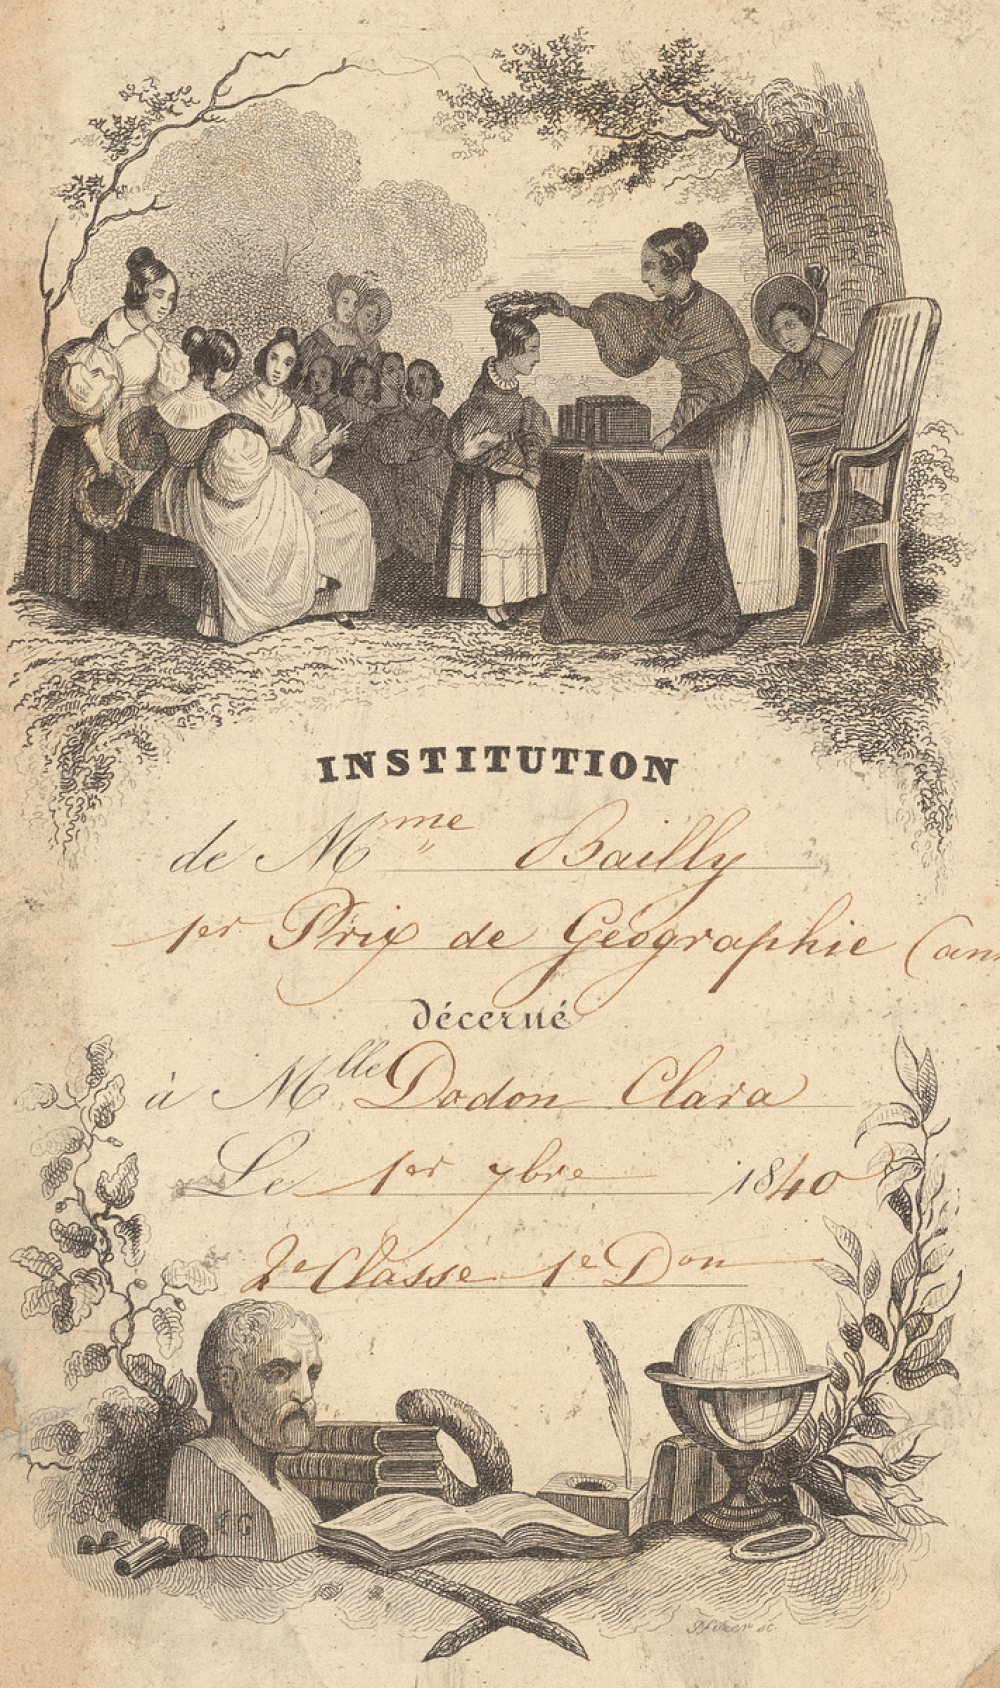 INSTITUTION
de Mme Bailly
1er Prix de Géographie (an
décerné
à Mlle Dodon Clara
Le 1er 7bre 1840
2e Classe 1e Don